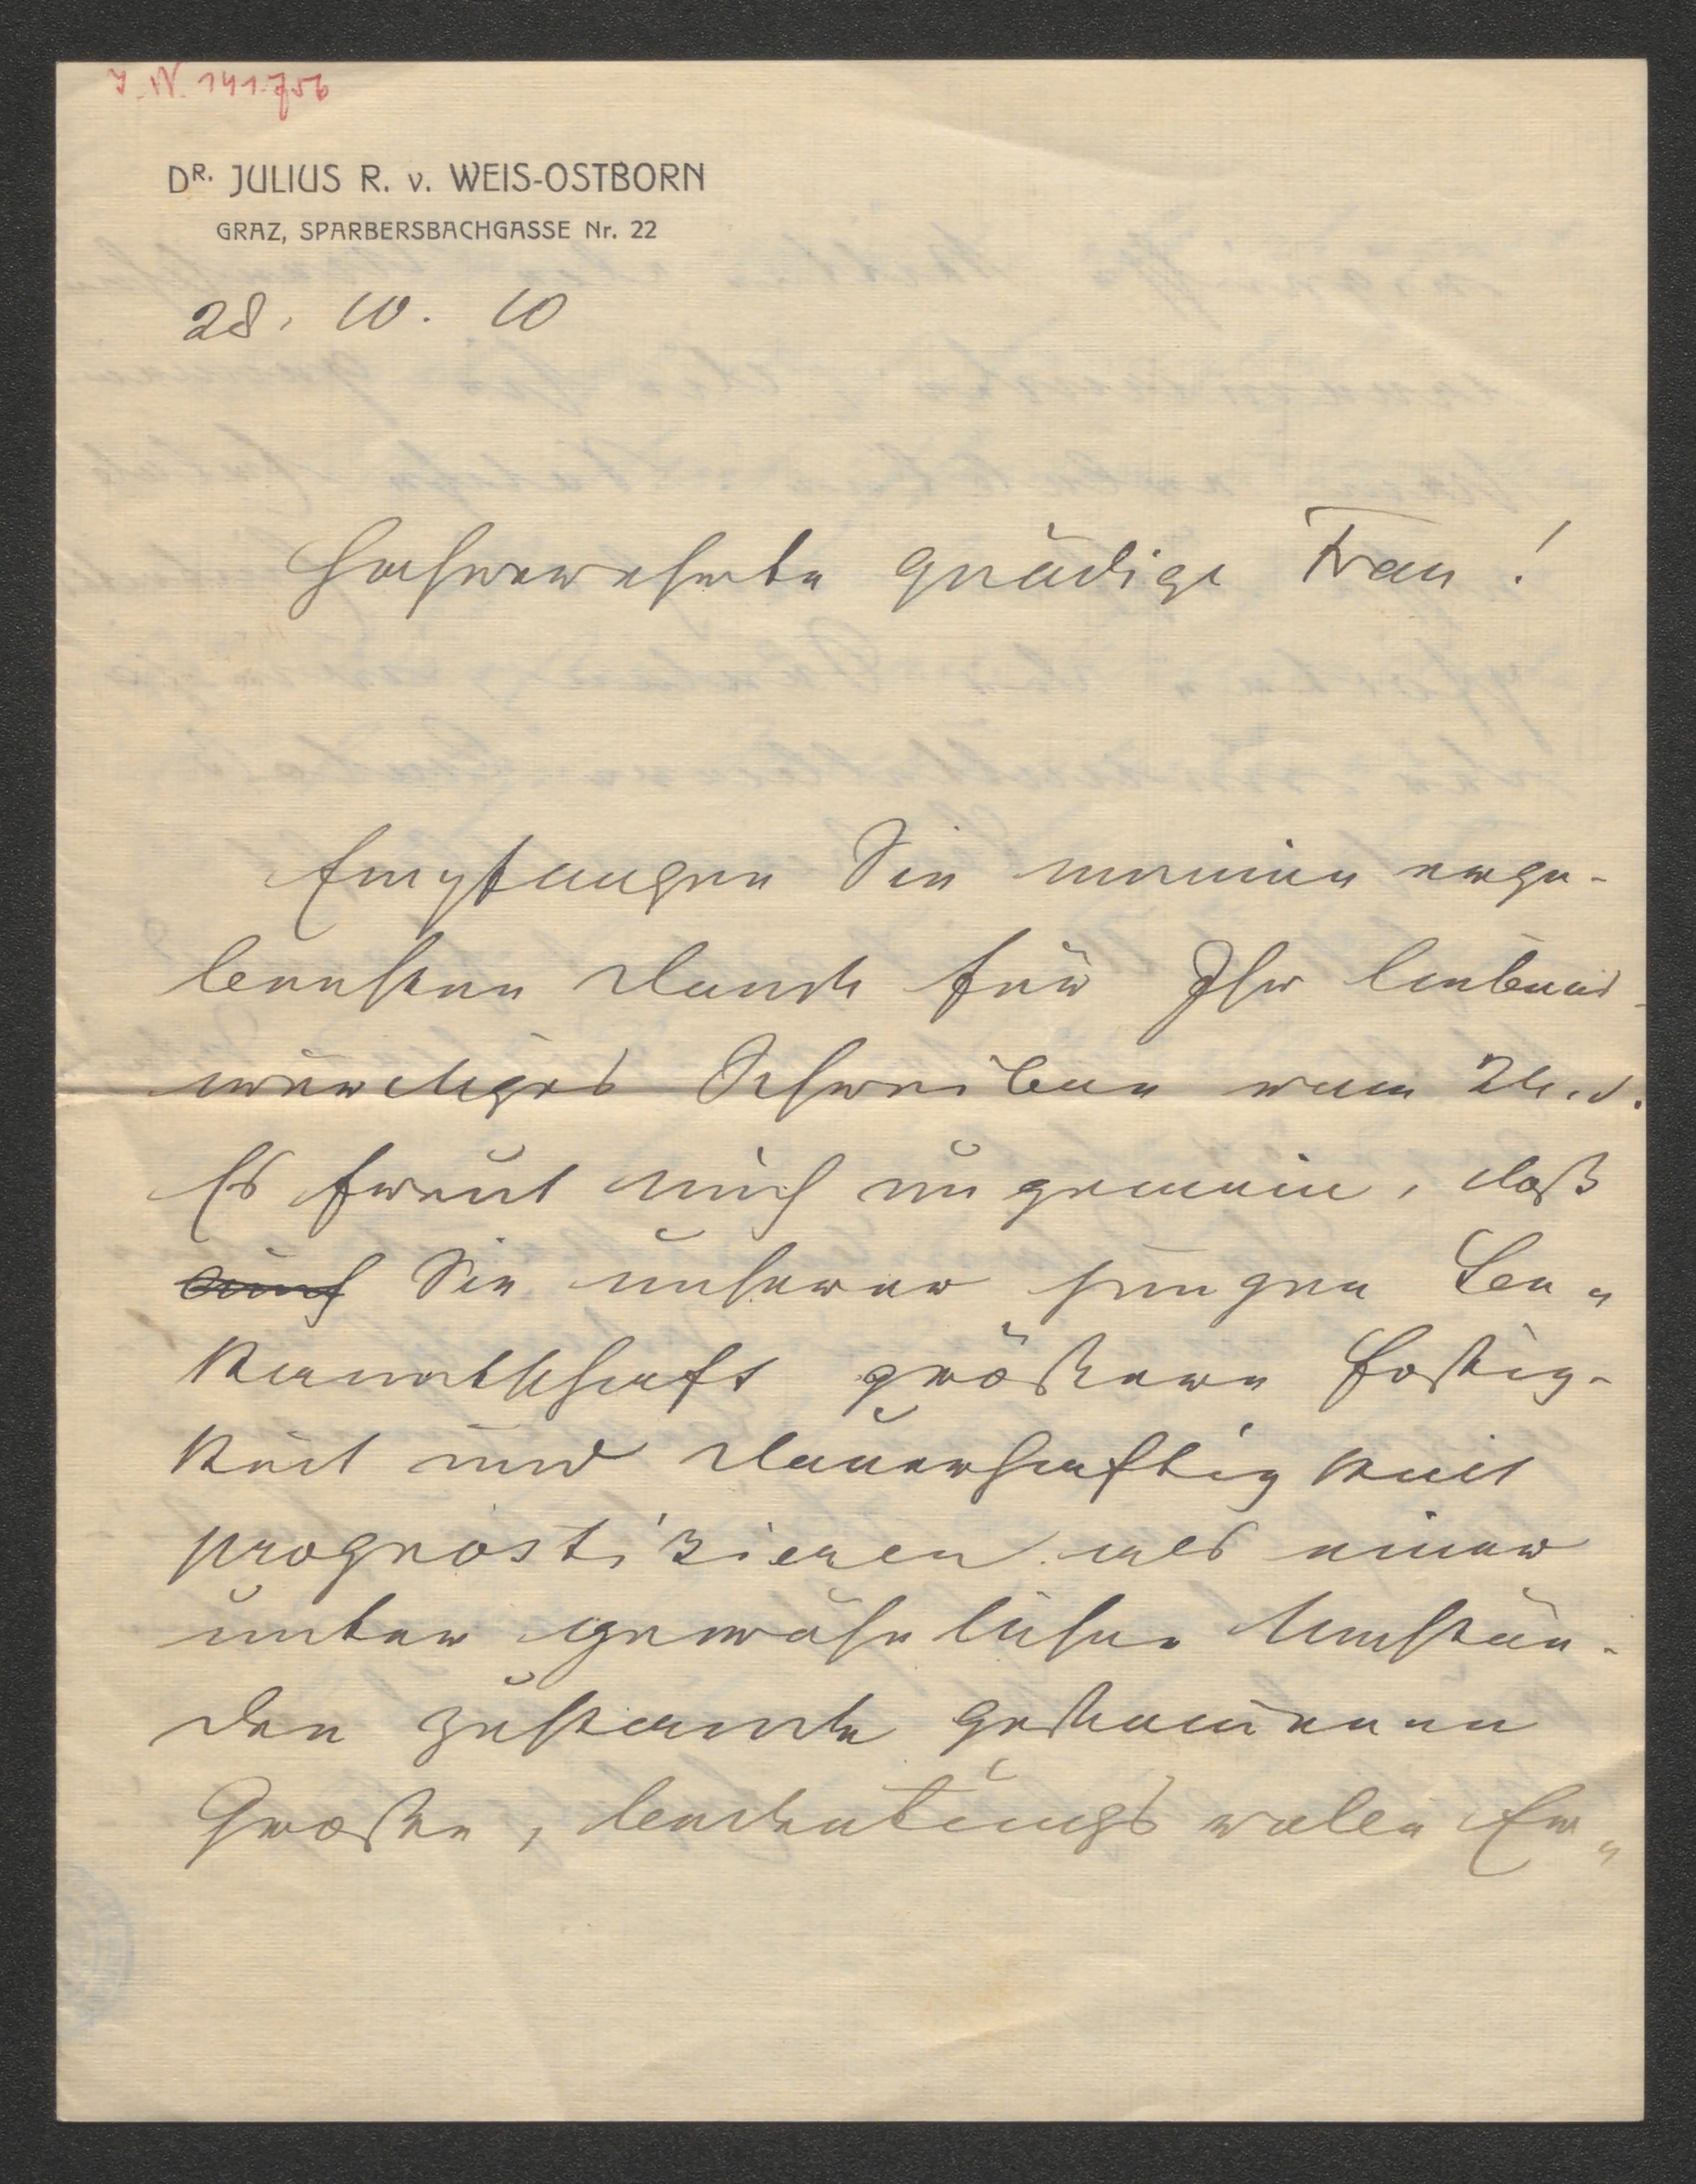 J. N. 141.756
DR. JULIUS R. v. WEIS-OSTBORN
GRAZ, SPARBERSBACHGASSE Nr. 22
28. 10. 10
Hochverehrte gnädige Frau!
Empfangen Sie meinen erge-
bensten Dank für Ihr liebens-
würdiges Schreiben vom 24. d.
Es freut mich ungemein, daß
auch Sie unserer jungen Be-
kanntschaft größere Festig-
keit und Dauerhaftigkeit
prognostizieren als einer
unter gewöhnlichen Umstän-
den zustande gekommenen
Große, bedeutungsvolle Er-